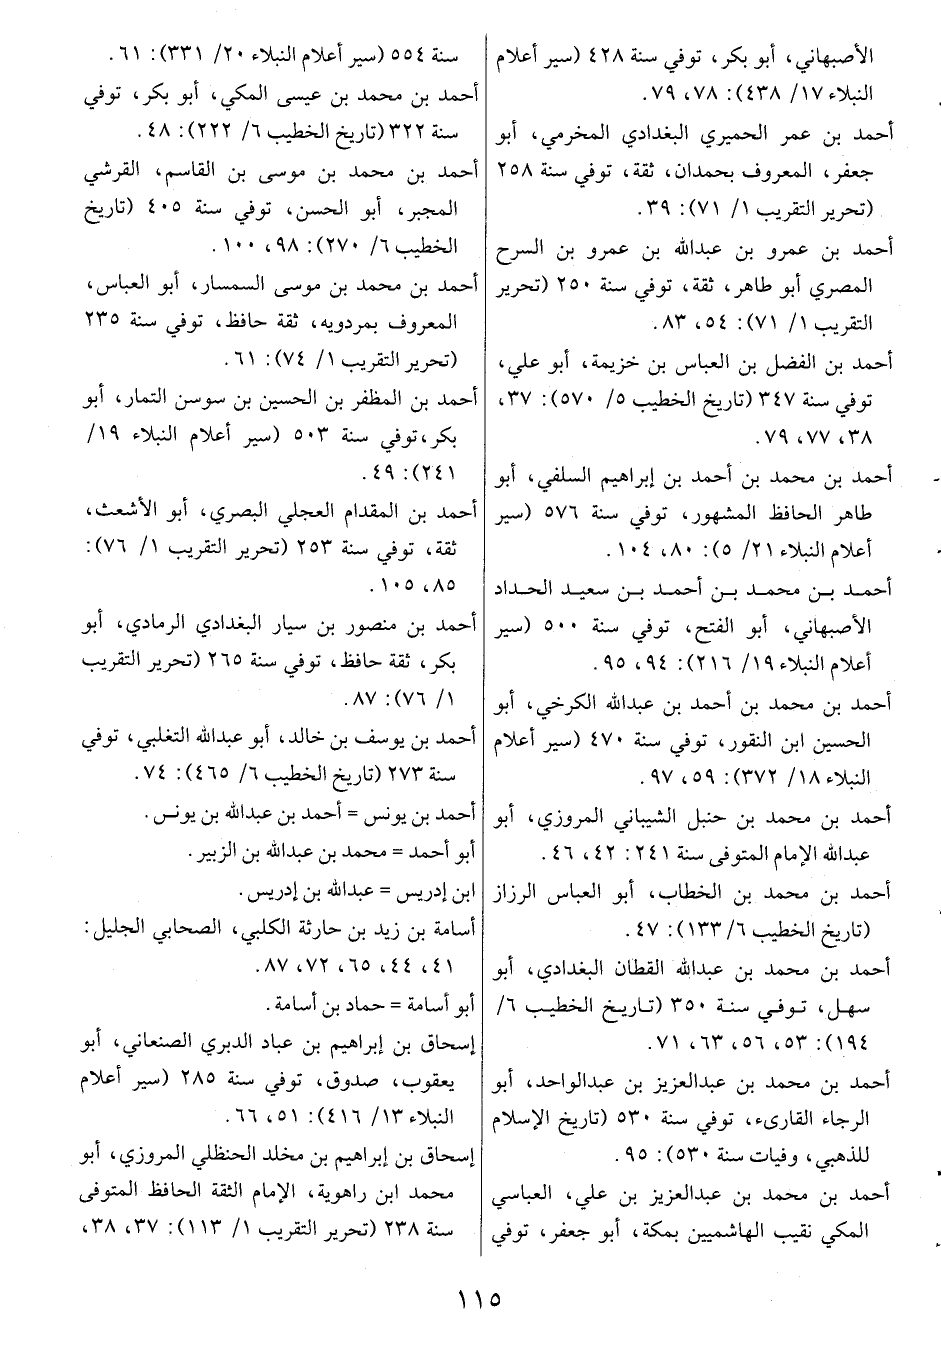 الأصبهاني، أبو بكر، توفي سنة ٤٢٨ (سير أعلام
النبلاء ١٧/ ٤٣٨): ٧٨، ٧٩.
أحمد بن عمر الحميري البغدادي المخرمي، أبو
جعفر، المعروف بحمدان، ثقة، توفي سنة ٢٥٨
(تحرير التقريب ١/ ٧١): ٣٩.
أحمد بن عمرو بن عبدالله بن عمرو بن السرح
المصري أبو طاهر، ثقة، توفي سنة ٢٥٠ (تحرير
التقريب ١/ ٧١): ٥٤، ٨٣.
أحمد بن الفضل بن العباس بن خزيمة، أبو علي،
توفي سنة ٣٤٧ (تاريخ الخطيب ٥/ ٥٧٠): ٣٧،
٣٨، ٧٧، ٧٩.
أحمد بن محمد بن أحمد بن إبراهيم السلفي، أبو
طاهر الحافظ المشهور، توفي سنة ٥٧٦ (سير
أعلام النبلاء ٢١/ ٥): ٨٠، ١٠٤.
أحمد بن محمد بن أحمد بن سعيد الحداد
الأصبهاني، أبو الفتح، توفي سنة ٥٠٠ (سير
أعلام النبلاء ١٩/ ٢١٦): ٩٤، ٩٥.
أحمد بن محمد بن أحمد بن عبدالله الكرخي، أبو
الحسين ابن النقور، توفي سنة ٤٧٠ (سير أعلام
النبلاء ١٨/ ٣٧٢): ٥٩، ٩٧.
أحمد بن محمد بن حنبل الشيباني المروزي، أبو
عبدالله الإمام المتوفى سنة ٢٤١: ٤٢، ٤٦.
أحمد بن محمد بن الخطاب، أبو العباس الرزاز
(تاريخ الخطيب ٦/ ١٣٣): ٤٧.
أحمد بن محمد بن عبدالله القطان البغدادي، أبو
سهل، توفي سنة ٣٥٠ (تاريخ الخطيب ٦/
١٩٤): ٥٣، ٥٦، ٦٣، ٧١.
أحمد بن محمد بن عبدالعزيز بن عبدالواحد، أبو
الرجاء القارىء، توفي سنة ٥٣٠ (تاريخ الإسلام
للذهبي، وفيات سنة ٥٣٠): ٩٥.
أحمد بن محمد بن عبدالعزيز بن علي، العباسي
المكي نقيب الهاشميين بمكة، أبو جعفر، توفي
سنة ٥٥٤ (سير أعلام النبلاء ٢٠/ ٣٣١): ٦١.
أحمد بن محمد بن عيسى المكي، أبو بكر، توفي
سنة ٣٢٢ (تاريخ الخطيب ٦/ ٢٢٢): ٤٨.
أحمد بن محمد بن موسى بن القاسم، القرشي
المجبر، أبو الحسن، توفي سنة ٤٠٥ (تاريخ
الخطيب ٦/ ٢٧٠): ٩٨، ١٠٠.
أحمد بن محمد بن موسى السمسار، أبو العباس،
المعروف بمردويه، ثقة حافظ، توفي سنة ٢٣٥
(تحرير التقريب ١/ ٧٤): ٦١.
أحمد بن المظفر بن الحسين بن سوسن التمار، أبو
بكر، توفي سنة ٥٠٣ (سير أعلام النبلاء ١٩/
٢٤١): ٤٩.
أحمد بن المقدام العجلي البصري، أبو الأشعث،
ثقة، توفي سنة ٢٥٣ (تحرير التقريب ١/ ٧٦):
٨٥، ١٠٥.
أحمد بن منصور بن سيار البغدادي الرمادي، أبو
بكر، ثقة حافظ، توفي سنة ٢٦٥ (تحرير التقريب
١/ ٧٦): ٨٧.
أحمد بن يوسف بن خالد، أبو عبدالله التغلبي، توفي
سنة ٢٧٣ (تاريخ الخطيب ٦/ ٤٦٥): ٧٤.
أحمد بن يونس = أحمد بن عبدالله بن يونس.
أبو أحمد = محمد بن عبدالله بن الزبير.
ابن إدريس = عبدالله بن إدريس.
أسامة بن زيد بن حارثة الكلبي، الصحابي الجليل:
٤١، ٤٤، ٦٥، ٧٢، ٨٧.
أبو أسامة = حماد بن أسامة.
إسحاق بن إبراهيم بن عباد الدبري الصنعاني، أبو
يعقوب، صدوق، توفي سنة ٢٨٥ (سير أعلام
النبلاء ١٣/ ٤١٦): ٥١، ٦٦.
إسحاق بن إبراهيم بن مخلد الحنظلي المروزي، أبو
محمد ابن راهوية، الإمام الثقة الحافظ المتوفى
سنة ٢٣٨ (تحرير التقريب ١/ ١١٣): ٣٧، ٣٨،
١١٥